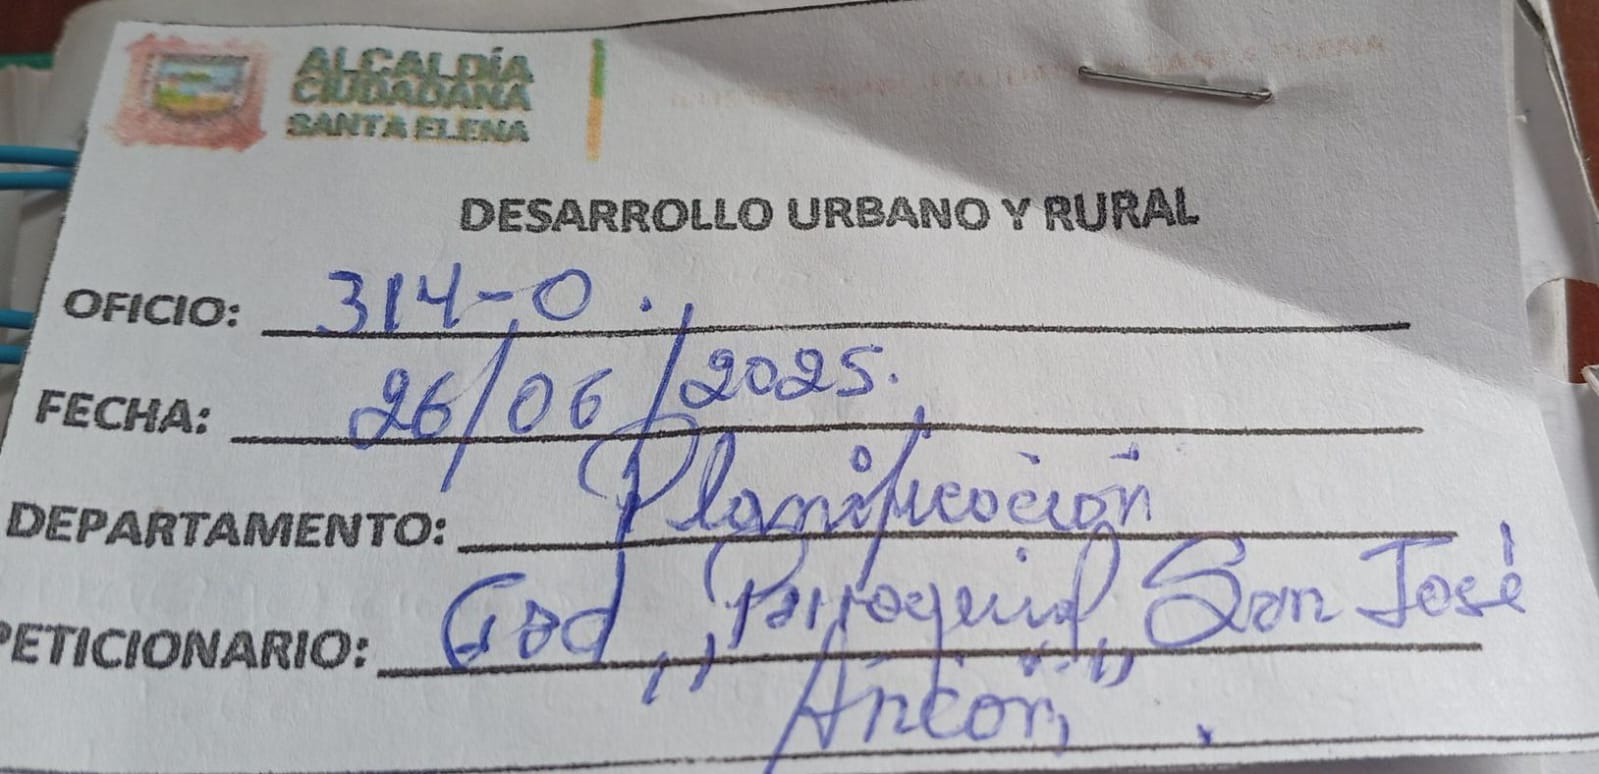 ALCALDÍA
CIUDADANA
SANTA ELENA
SANTA ELENA
DESARROLLO URBANO Y RURAL
OFICIO: 314-O.
FECHA: 26/06/2025.
DEPARTAMENTO: Planificación
PETICIONARIO: Gad Parroquial San José
Ancón